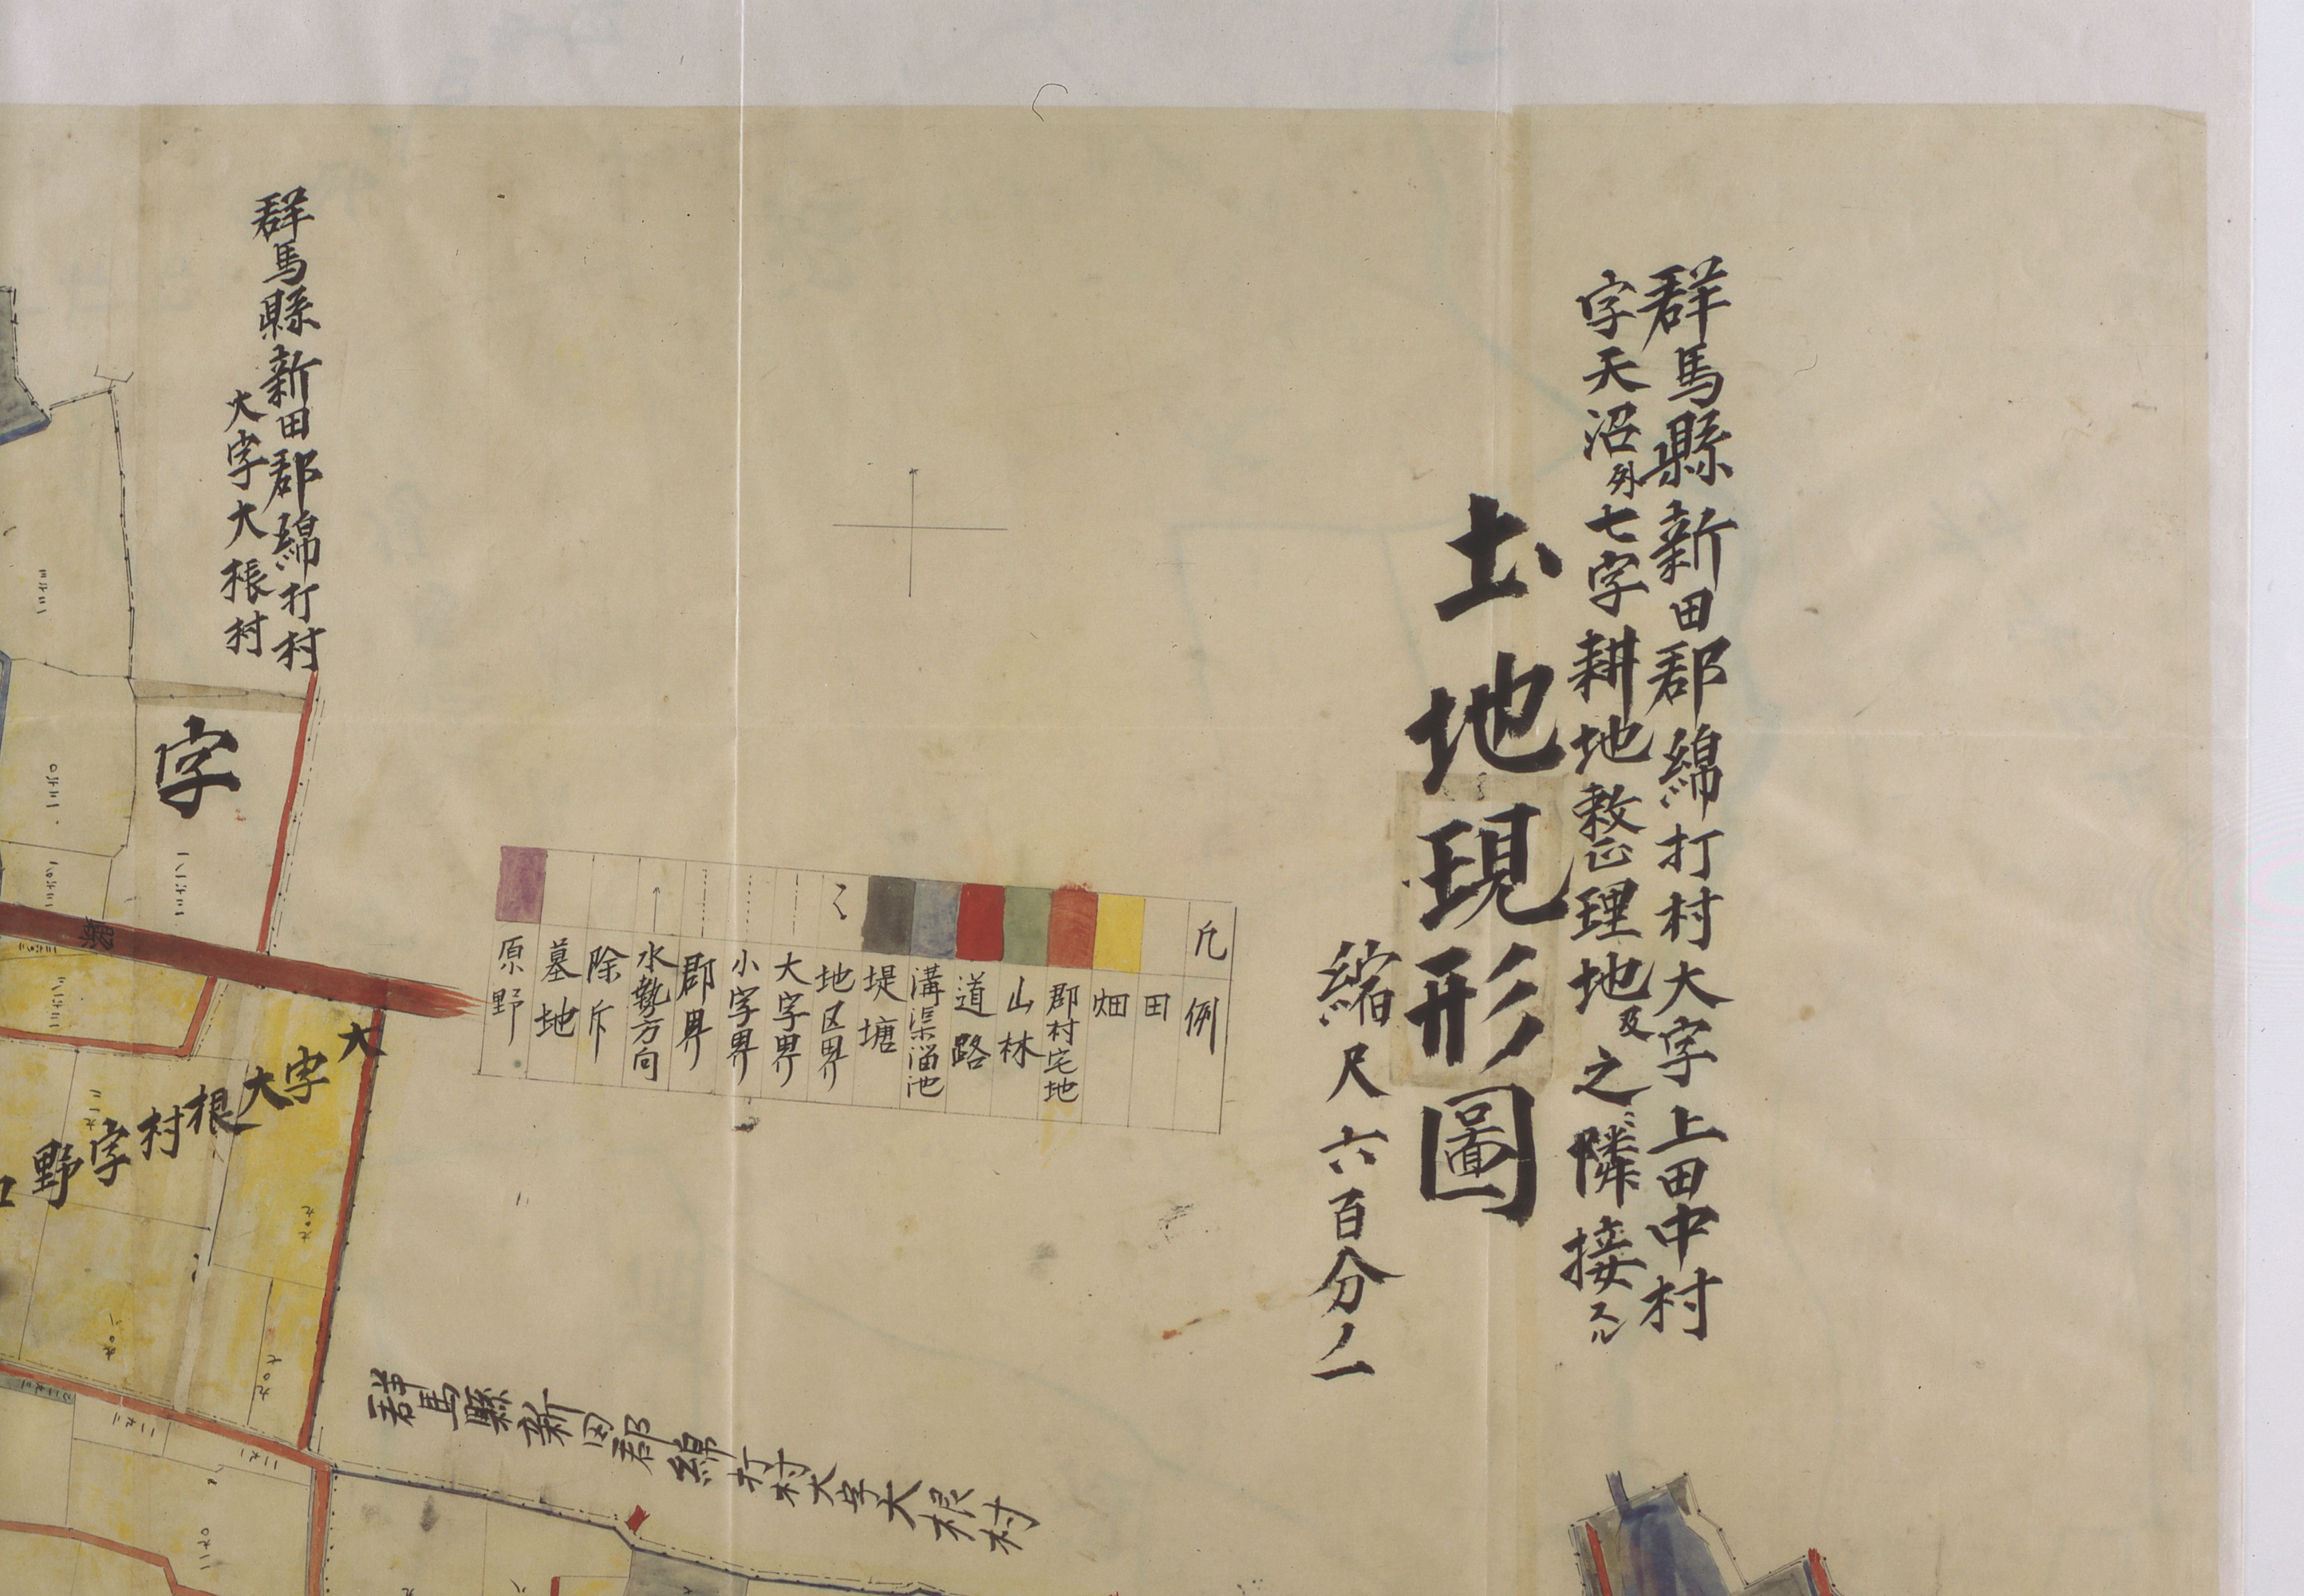 群馬縣新田郡綿打村大字上田中村
字天沼外七字耕地整理地及之ニ隣接スル
土地現形圖
縮尺六百分ノ一
凡例
田
畑
郡村宅地
山林
道路
溝渠溜池
堤塘
地区界
大字界
小字界
郡界
水勢方向
除斥
墓地
原野
群馬縣新田郡綿打村
大字大根村
字
大字大根村字野
群馬縣新田郡綿打村大字大根村